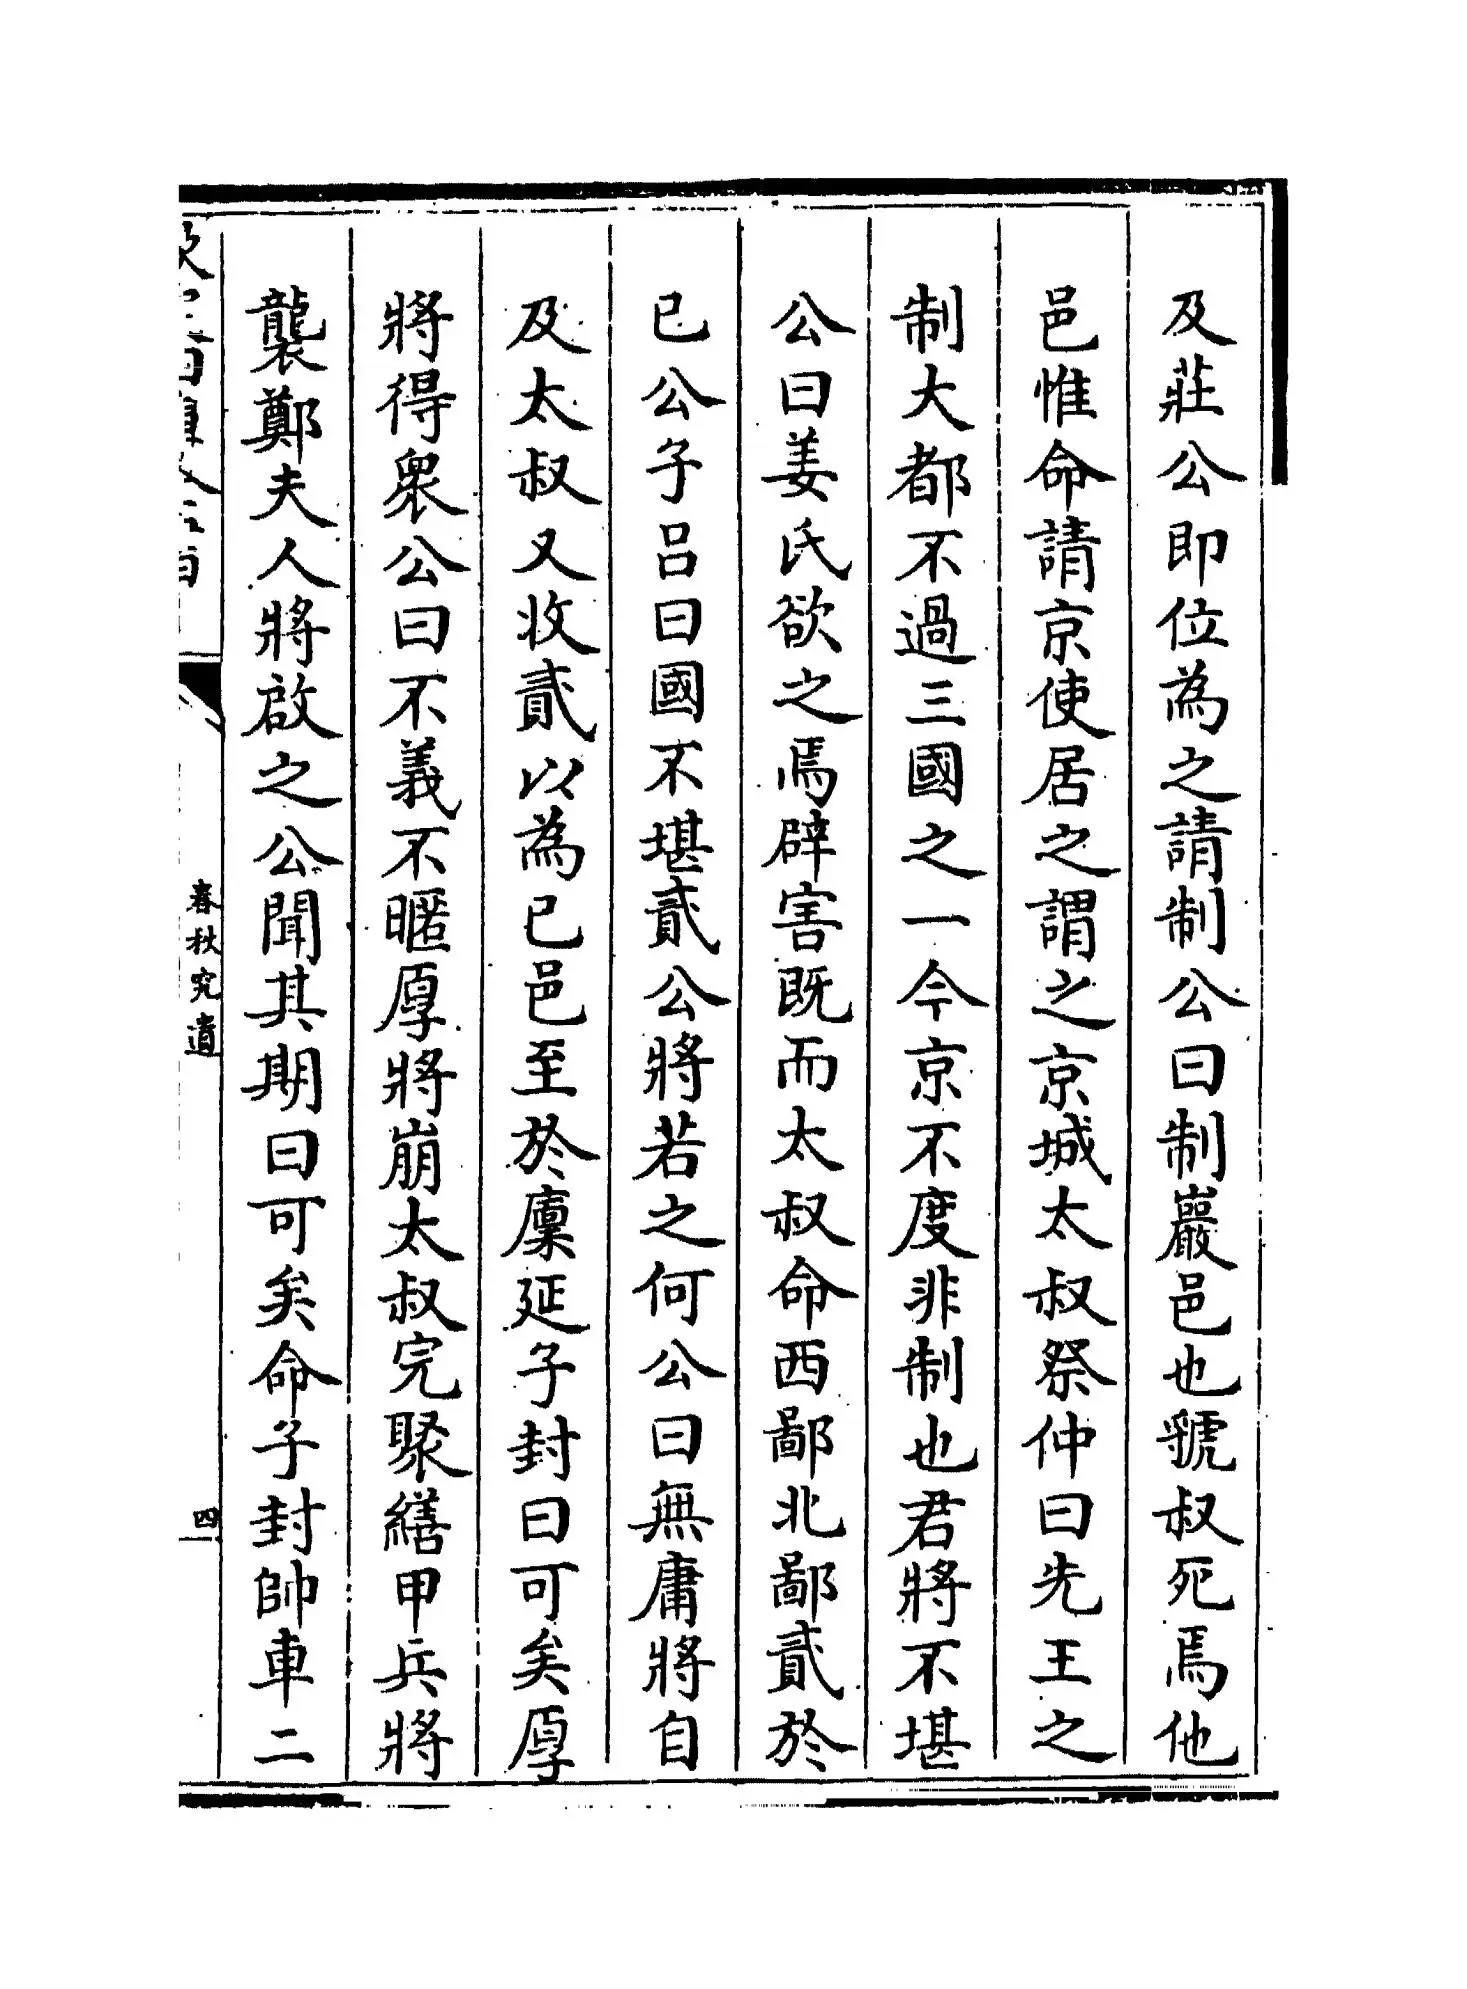 及莊公即位為之請制公曰制巖邑也虢叔死焉他
邑惟命請京使居之謂之京城太叔祭仲曰先王之
制大都不過三國之一今京不度非制也君將不堪
公曰姜氏欲之焉辟害既而太叔命西鄙北鄙貳於
已公子呂曰國不堪貳公將若之何公曰無庸將自
及太叔又收貳以為已邑至於廩延子封曰可矣厚
將得衆公曰不義不暱厚將崩太叔完聚繕甲兵將
襲鄭夫人將啟之公聞其期曰可矣命子封帥車二
春秋究遺
四